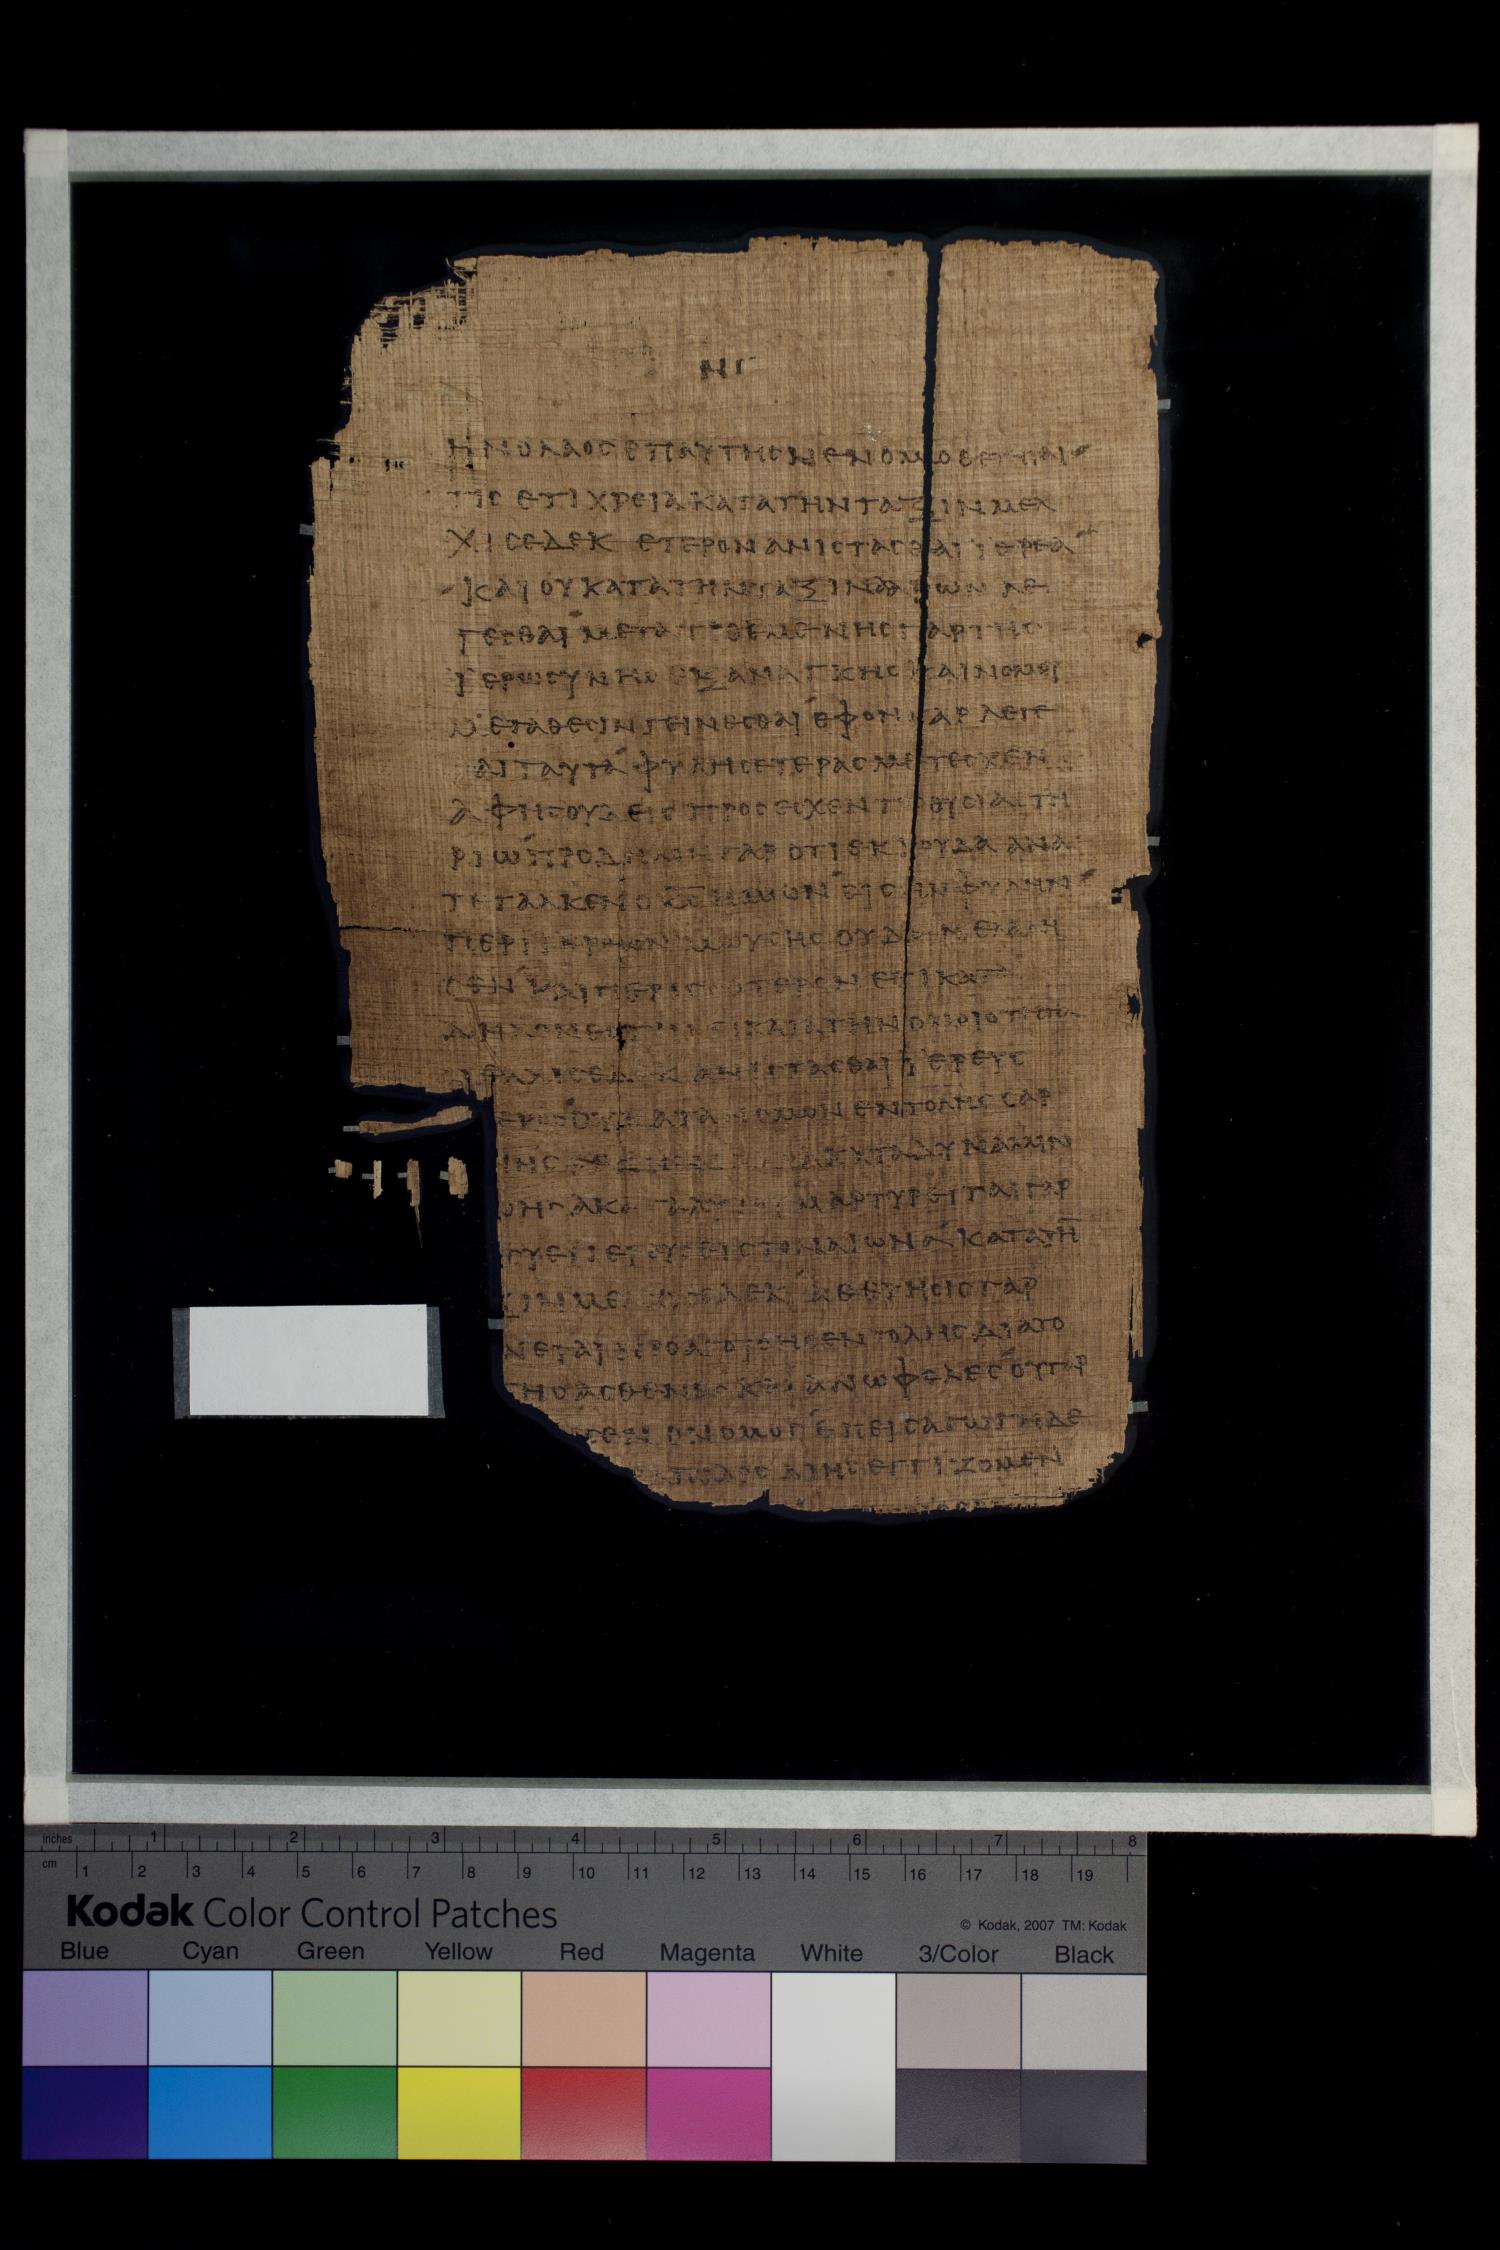 ΝΓ
ΗΝ Ο ΛΑΟϹ ΕΠ ΑΥΤΗϹ ΝΕΝΟΜΟΘΕΤΗΤΑΙ
ΤΙϹ ΕΤΙ ΧΡΕΙΑ ΚΑΤΑ ΤΗΝ ΤΑΞΙΝ ΜΕΛ
ΧΙϹΕΔΕΚ ΕΤΕΡΟΝ ΑΝΙϹΤΑϹΘΑΙ ΙΕΡΕΑ
ΚΑΙ ΟΥ ΚΑΤΑ ΤΗΝ ΤΑΞΙΝ ΑΑΡΩΝ ΛΕ
ΓΕϹΘΑΙ ΜΕΤΑΤΙΘΕΜΕΝΗϹ ΓΑΡ ΤΗϹ
ΙΕΡΩϹΥΝΗϹ ΕΞ ΑΝΑΓΚΗϹ ΚΑΙ ΝΟΜΟΥ
ΜΕΤΑΘΕϹΙΝ ΓΕΙΝΕϹΘΑΙ ΕΦ ΟΝ ΓΑΡ ΛΕΓΕ
ΤΑΙ ΤΑΥΤΑ ΦΥΛΗϹ ΕΤΕΡΑϹ ΜΕΤΕϹΧΕΝ
ΑΦ ΗϹ ΟΥΔΕΙϹ ΠΡΟϹΕϹΧΕΝ ΤΩ ΘΥϹΙΑϹΤΗ
ΡΙΩ ΠΡΟΔΗΛΟΝ ΓΑΡ ΟΤΙ ΕΚ ΙΟΥΔΑ ΑΝΑ
ΤΕΤΑΛΚΕΝ Ο Κ̅Ϲ̅ ΗΜΩΝ ΕΙϹ ΗΝ ΦΥΛΗΝ
ΠΕΡΙ ΙΕΡΕΩΝ ΜΩΥϹΗϹ ΟΥΔΕΝ ΕΛΑΛΗ
ϹΕΝ ΚΑΙ ΠΕΡΙϹϹΟΤΕΡΟΝ ΕΤΙ ΚΑΤΑ
ΔΗΛΟΝ ΕϹΤΙΝ ΕΙ ΚΑΤΑ ΤΗΝ ΟΜΟΙΟΤΗΤΑ
ΜΕΛΧΙϹΕΔΕΚ ΑΝΙϹΤΑϹΘΑΙ ΙΕΡΕΥϹ
ΟΥ ΚΑΤΑ ΝΟΜΟΝ ΕΝΤΟΛΗϹ ϹΑΡ
ΚΑΤΑ ΔΥΝΑΜΙΝ
ΑΚΑΤΑΛΥΤΟΥ ΜΑΡΤΥΡΕΙΤΑΙ ΓΑΡ
ϹΥ ΕΙ ΙΕΡΕΥϹ ΕΙϹ ΤΟΝ ΑΙΩΝΑ ΚΑΤΑ ΤΗ̅
ΞΙΝ ΜΕΛΧΙϹΕΔΕΚ ΑΘΕΤΗϹΙϹ ΓΑΡ
ΝΕΤΑΙ ΠΡΟΑΓΟΥϹΗϹ ΕΝΤΟΛΗϹ ΔΙΑ ΤΟ
ΤΗϹ ΑϹΘΕΝΕϹ ΚΑΙ ΑΝΩΦΕΛΕϹ ΟΥ ΓΑΡ
Ο ΝΟΜΟϹ ΕΠΕΙϹΑΓΩΓΗ ΔΕ
ΠΙΔΟϹ ΔΙ ΗϹ ΕΓΓΙΖΟΜΕΝ
inches 1 2 3 4 5 6 7 8
cm 1 2 3 4 5 6 7 8 9 10 11 12 13 14 15 16 17 18 19
Kodak Color Control Patches © Kodak, 2007 TM: Kodak
Blue Cyan Green Yellow Red Magenta White 3/Color Black